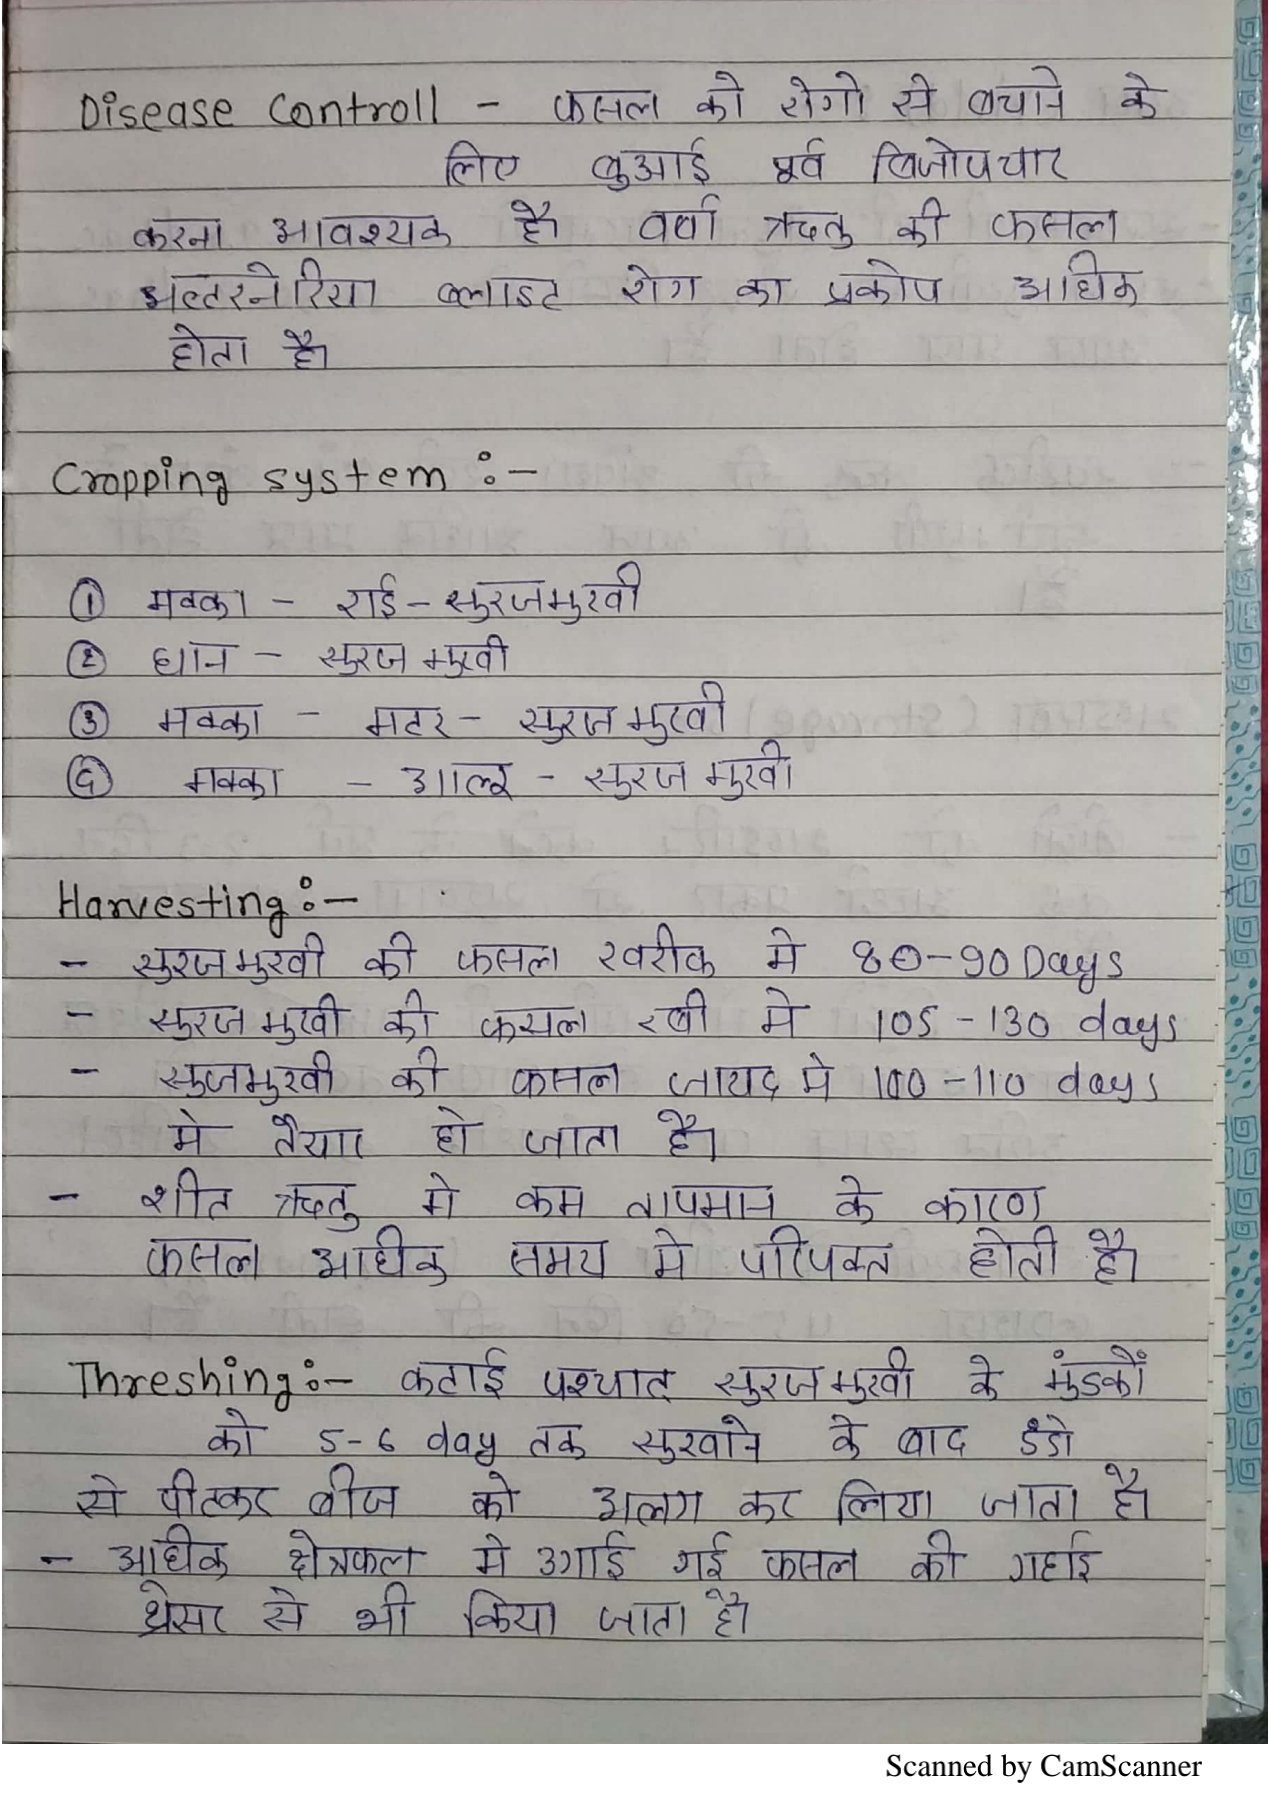 Disease Controll - फसल को रोगो से बचाने के
लिए बुआई पूर्व बिजोपचार
करना आवश्यक है। वर्षा ऋतु की फसल
अल्टरनेरिया ब्लाइट रोग का प्रकोप अधिक
होता है।
Cropping system :-
① मक्का - राई - सुरजमुखी
② धान - सुरजमुखी
③ मक्का - मटर - सुरजमुखी
④ मक्का - आलू - सुरजमुखी
Harvesting :-
- सुरजमुखी की फसल खरीफ मे 80-90 Days
- सुरजमुखी की फसल रबी मे 105-130 days
- सुजमुखी की फसल जायद मे 100-110 days
मे तैयार हो जाता है।
- शीत ऋतु मे कम तापमान के कारण
फसल अधीक समय मे परिपक्त होती है।
Threshing :- कटाई पश्चात् सुरजमुखी के मुंडकों
को 5-6 day तक सुखाने के बाद डंडो
से पीटकर बीज को अलग कर लिया जाता है।
- अधीक क्षेत्रफल मे उगाई गई फसल की गहाई
थ्रेसर से भी किया जाता है।
Scanned by CamScanner